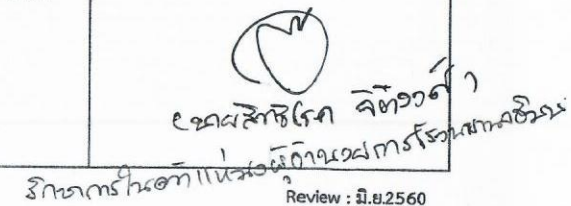 (นายสิทธิโชค จิตวงศ์)
รักษาการในตำแหน่งผู้อำนวยการโรงพยาบาล
Review : มิ.ย.2560